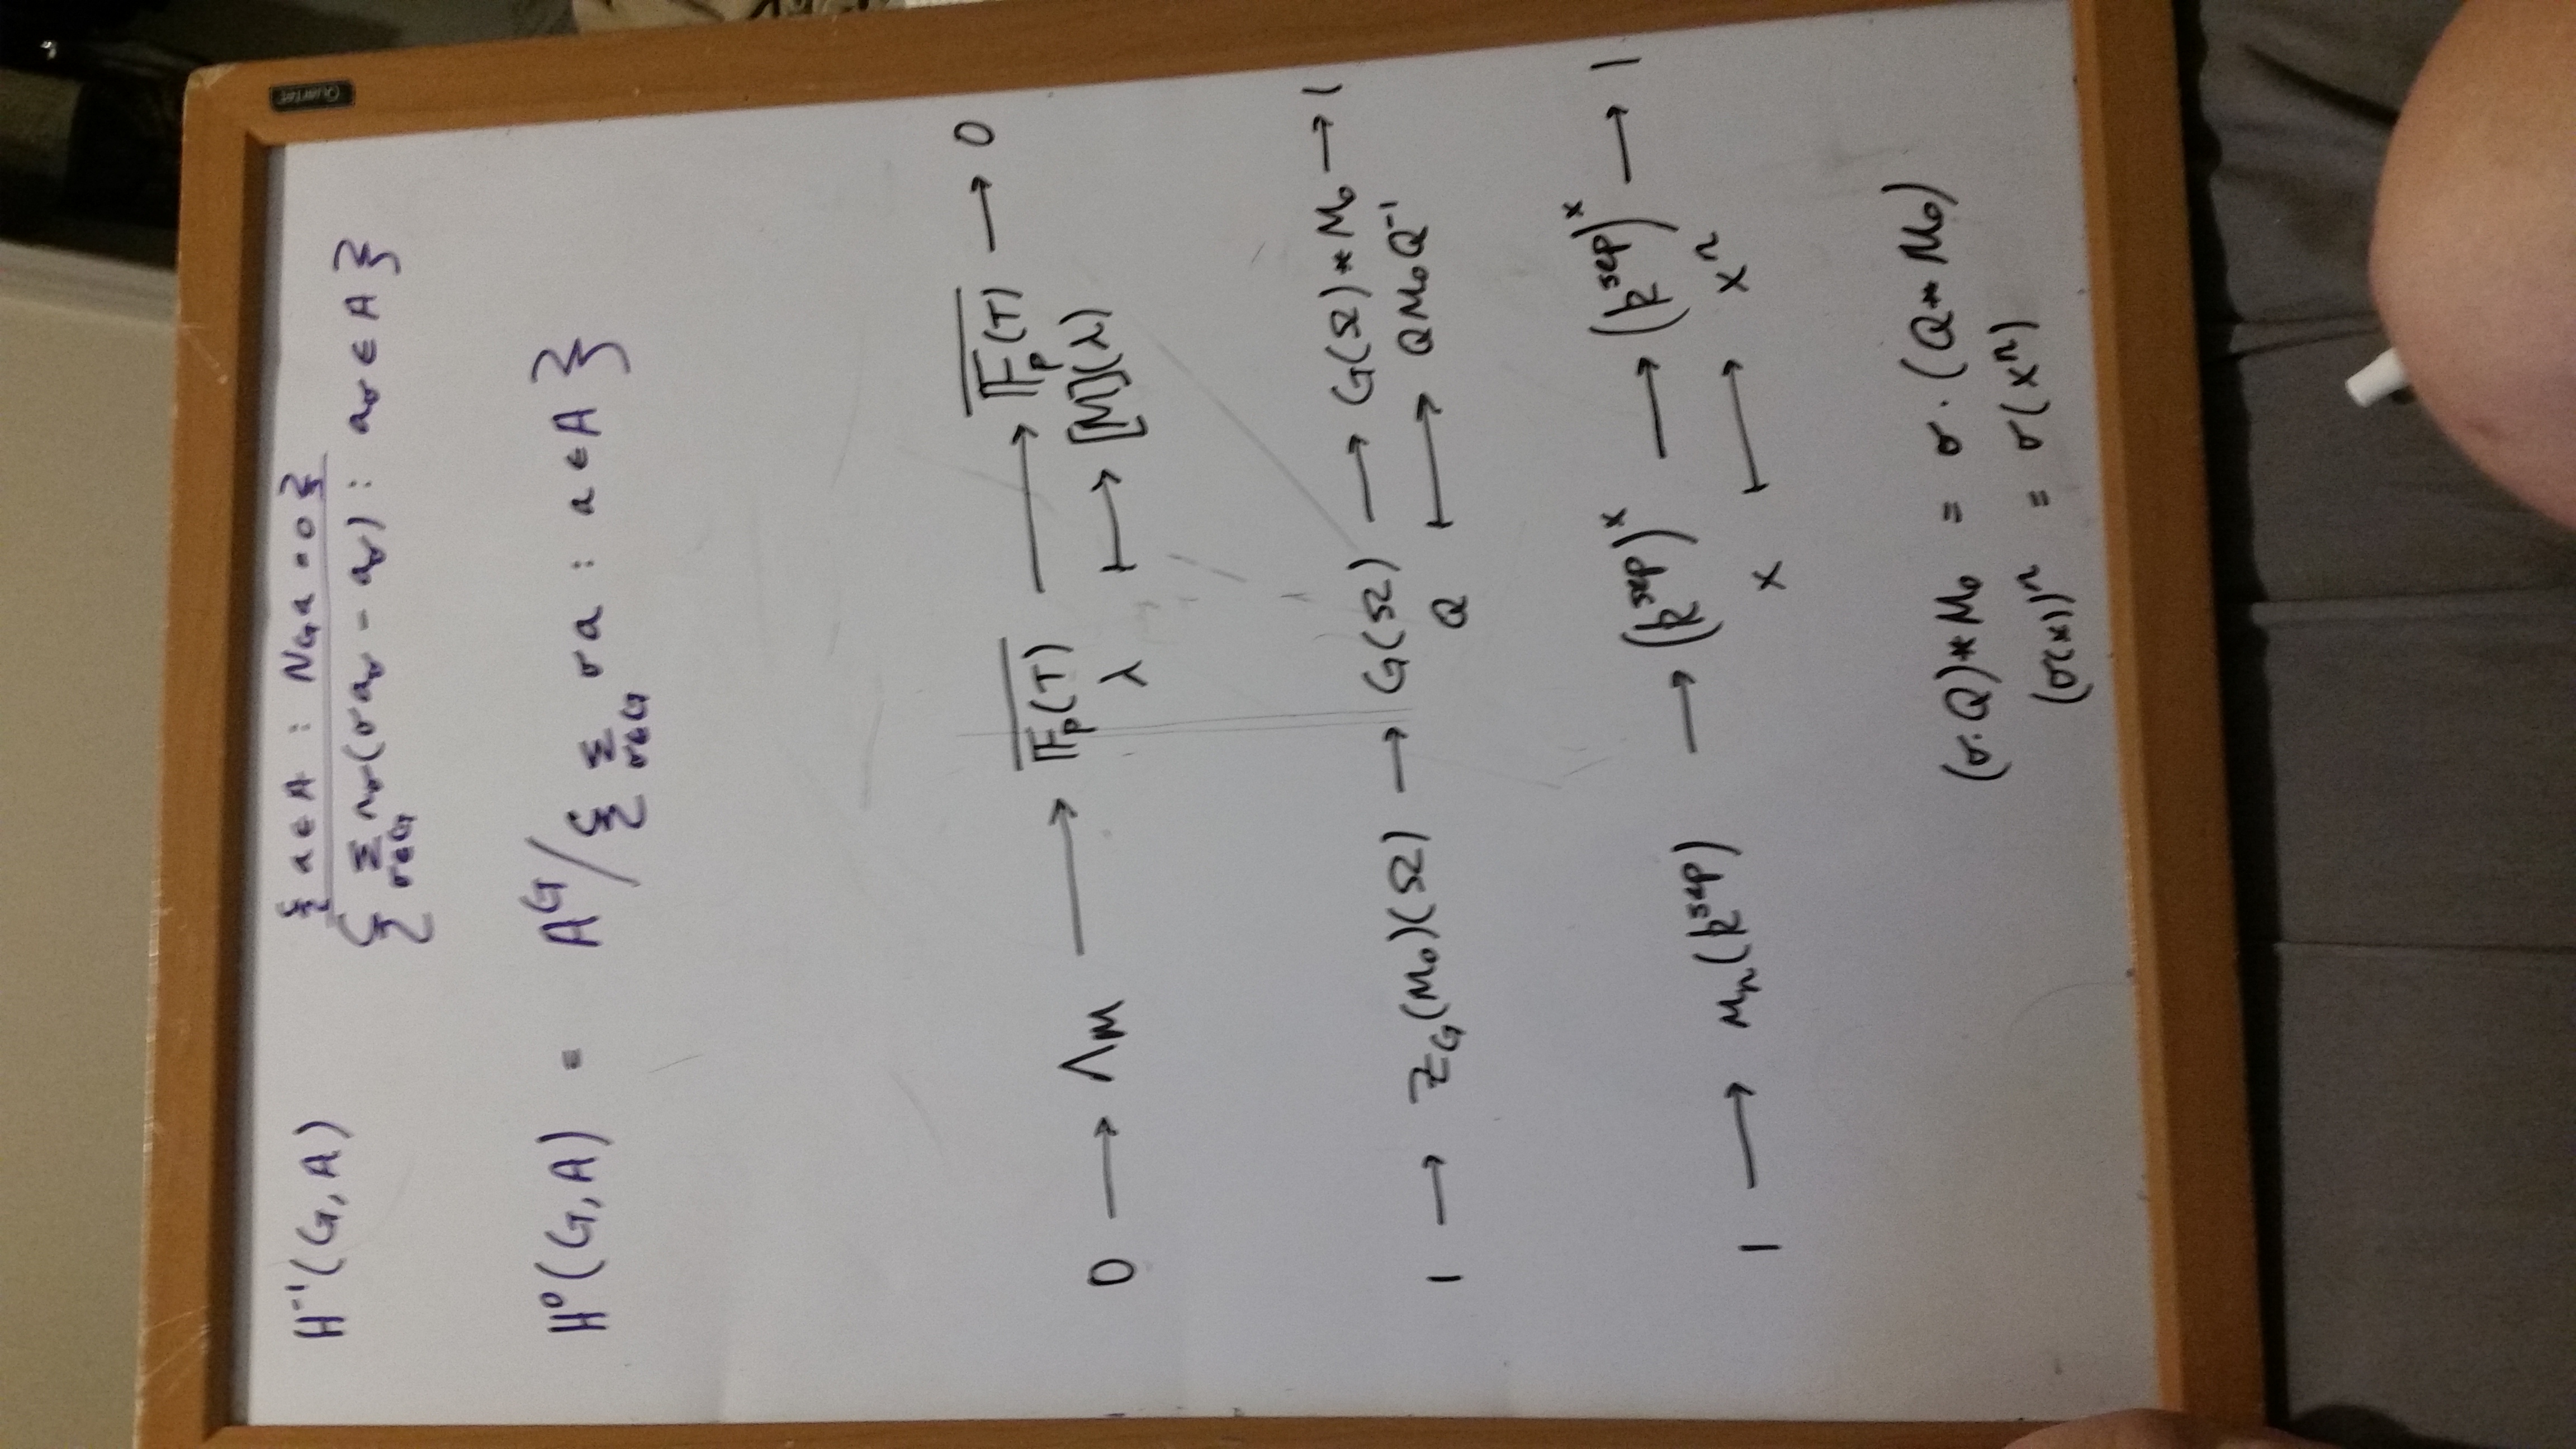 H⁻¹(G, A) { a ∈ A : N_G a = 0 }
{ Σ_{σ∈G} n_σ(σ a_σ − a_σ) : a_σ ∈ A }
Quartet
H⁰(G, A) = A^G / { Σ_{σ∈G} σa : a ∈ A }
0 → Λ_M → \overline{𝔽_p(T)} → \overline{𝔽_p(T)} → 0
λ ↦ [M](λ)
1 → Z_G(M₀)(Ω) → G(Ω) → G(Ω)*M₀ → 1
Q ↦ QM₀Q⁻¹
1 → μ_n(k^sep) → (k^sep)^× → (k^sep)^× → 1
x ↦ xⁿ
(σ·Q)*M₀ = σ·(Q*M₀)
(σ(x))ⁿ = σ(xⁿ)